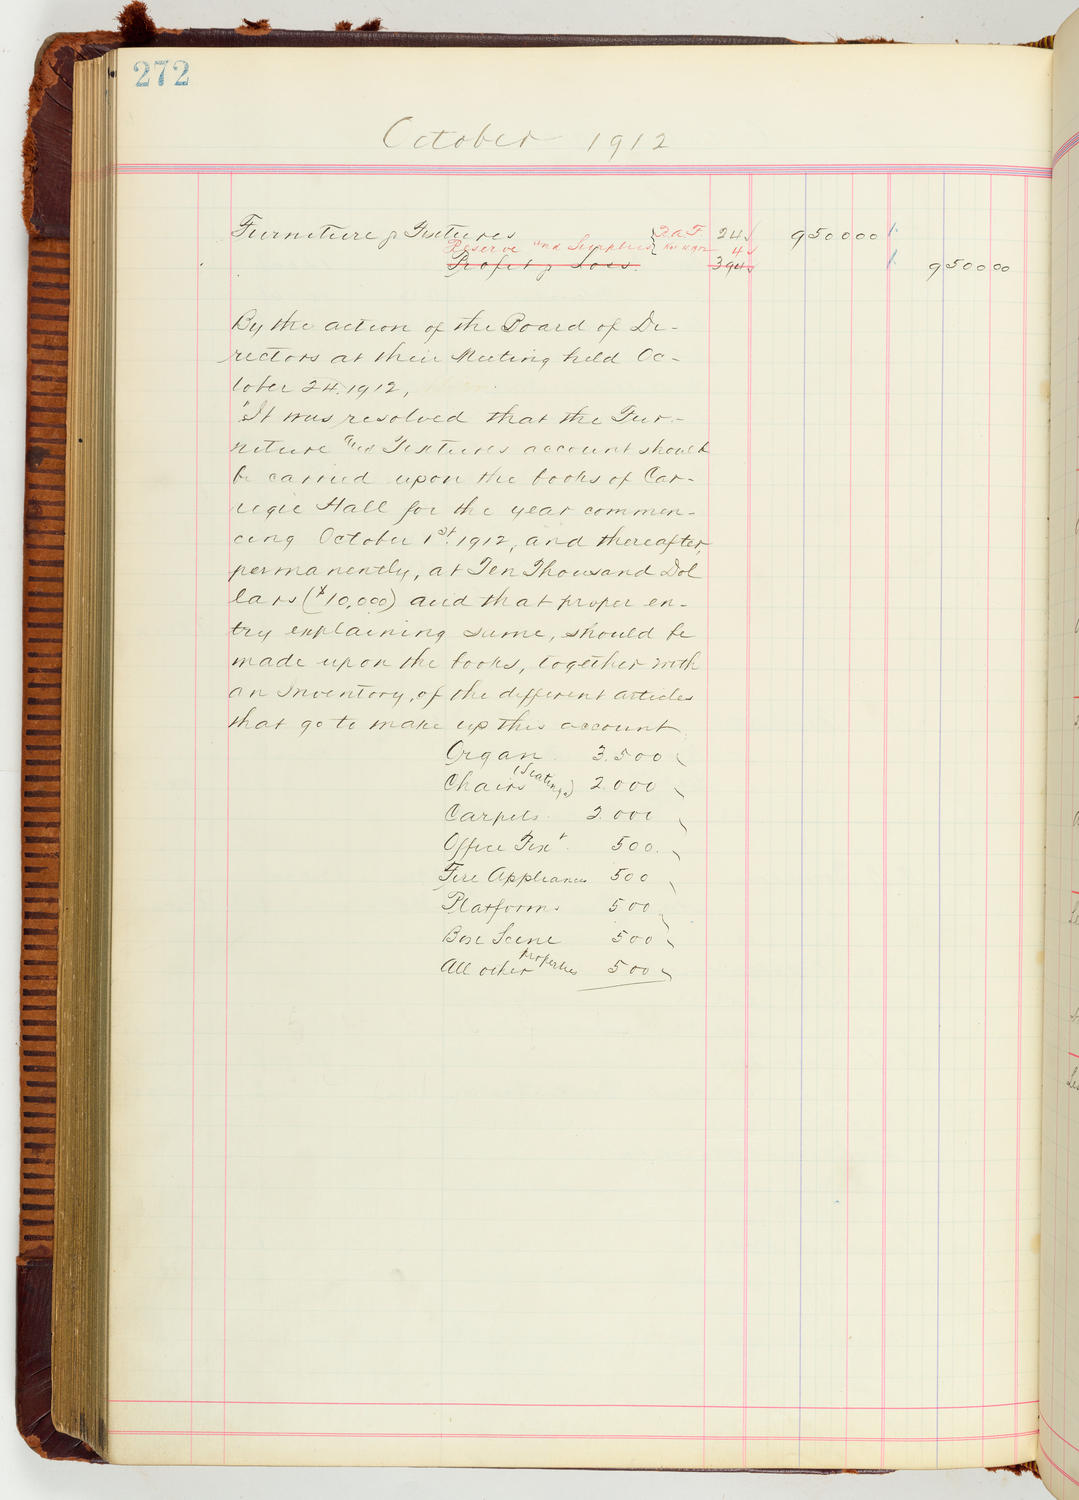 272
October 1912
Furniture & Fixtures 24 950000
Reserve and Supplies 4
Profit & Loss. 394 950000
By the action of the Board of Di-
rectors at their Meeting held Oc-
tober 24. 1912,
"It was resolved that the Fur-
niture and Fixtures account should
be carried upon the books of Car-
negie Hall for the year commen-
cing October 1st. 1912, and thereafter,
permanently, at Ten Thousand Dol
lars ($10,000) and that proper en-
try explaining same, should be
made upon the books, together with
an Inventory, of the different articles
that go to make up this account
Organ 3.500
Chairs (Seating) 2.000
Carpets. 2.000
Office Fixt. 500.
Fire Appliances 500
Platforms 500
Box Scene 500
All other Properties 500